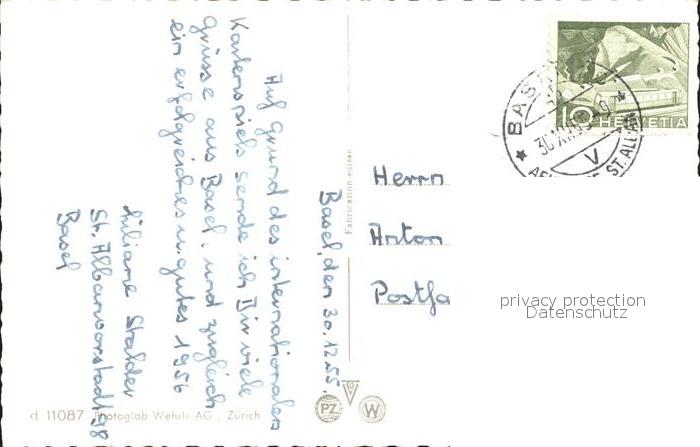 Basel, den 30.12.55.
Auf Grund des internationalen
Kartenspiels sende ich Dir viele
Grüsse aus Basel, und zugleich
ein erfolgreiches u. gutes 1956
Liliane Stalder
St. Albanvorstadt
Basel
Fabrication suisse
Herrn
Anton
Postfa
privacy protection
Datenschutz
10 HELVETIA
BAS
30.XII.55
V
ST. ALBAN
d 11087 Photoglob-Wehrli AG., Zürich
PZ
W